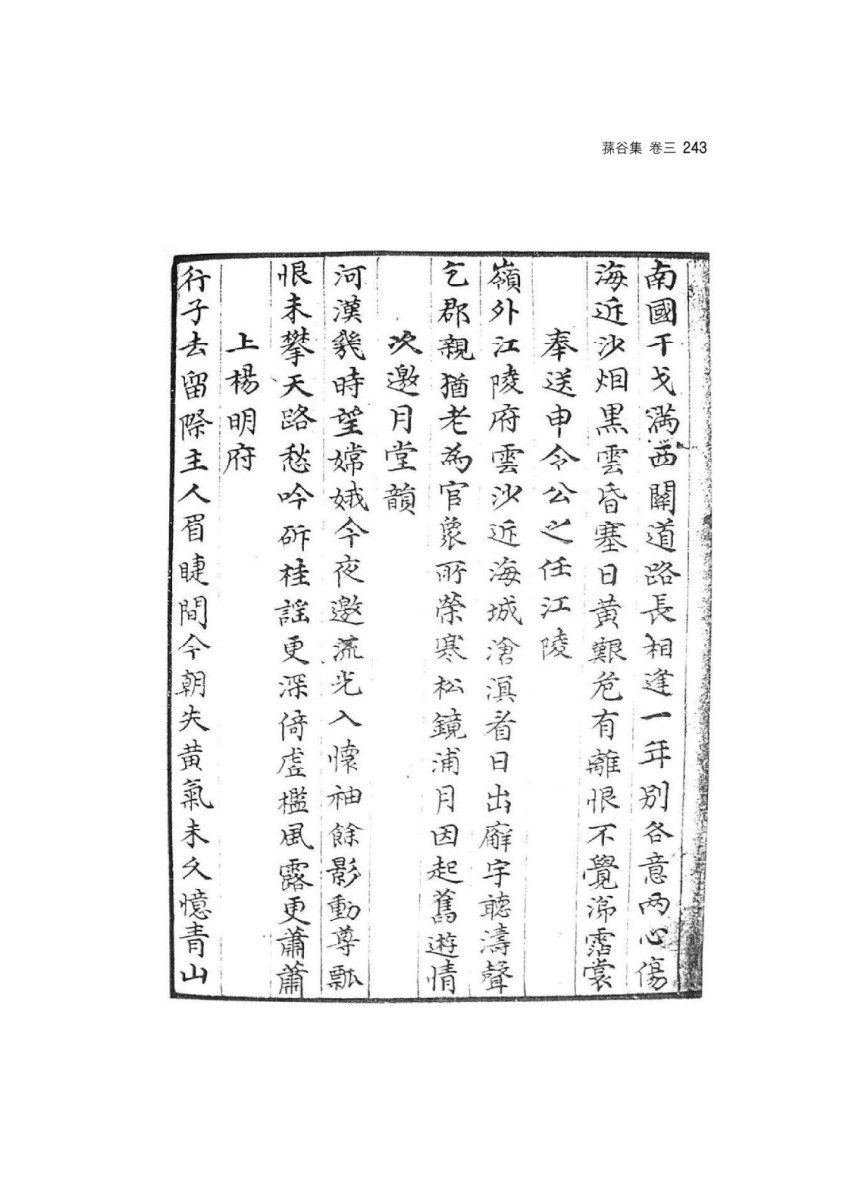 蓀谷集 卷三 243
南國干戈滿西關道路長相逢一年別各意兩心傷
海近沙烟黑雲昏塞日黃艱危有離恨不覺淚霑裳
奉送申令公之任江陵
嶺外江陵府雲沙近海城滄溟看日出廨宇聽濤聲
乞郡親猶老為官衆所榮寒松鏡浦月因起舊遊情
次邀月堂韻
河漢幾時望嫦娥今夜邀流光入懷袖餘影動尊瓢
恨未攀天路愁吟斫桂謠更深倚虛檻風露更蕭蕭
上楊明府
行子去留際主人眉睫間今朝失黃氣未久憶青山